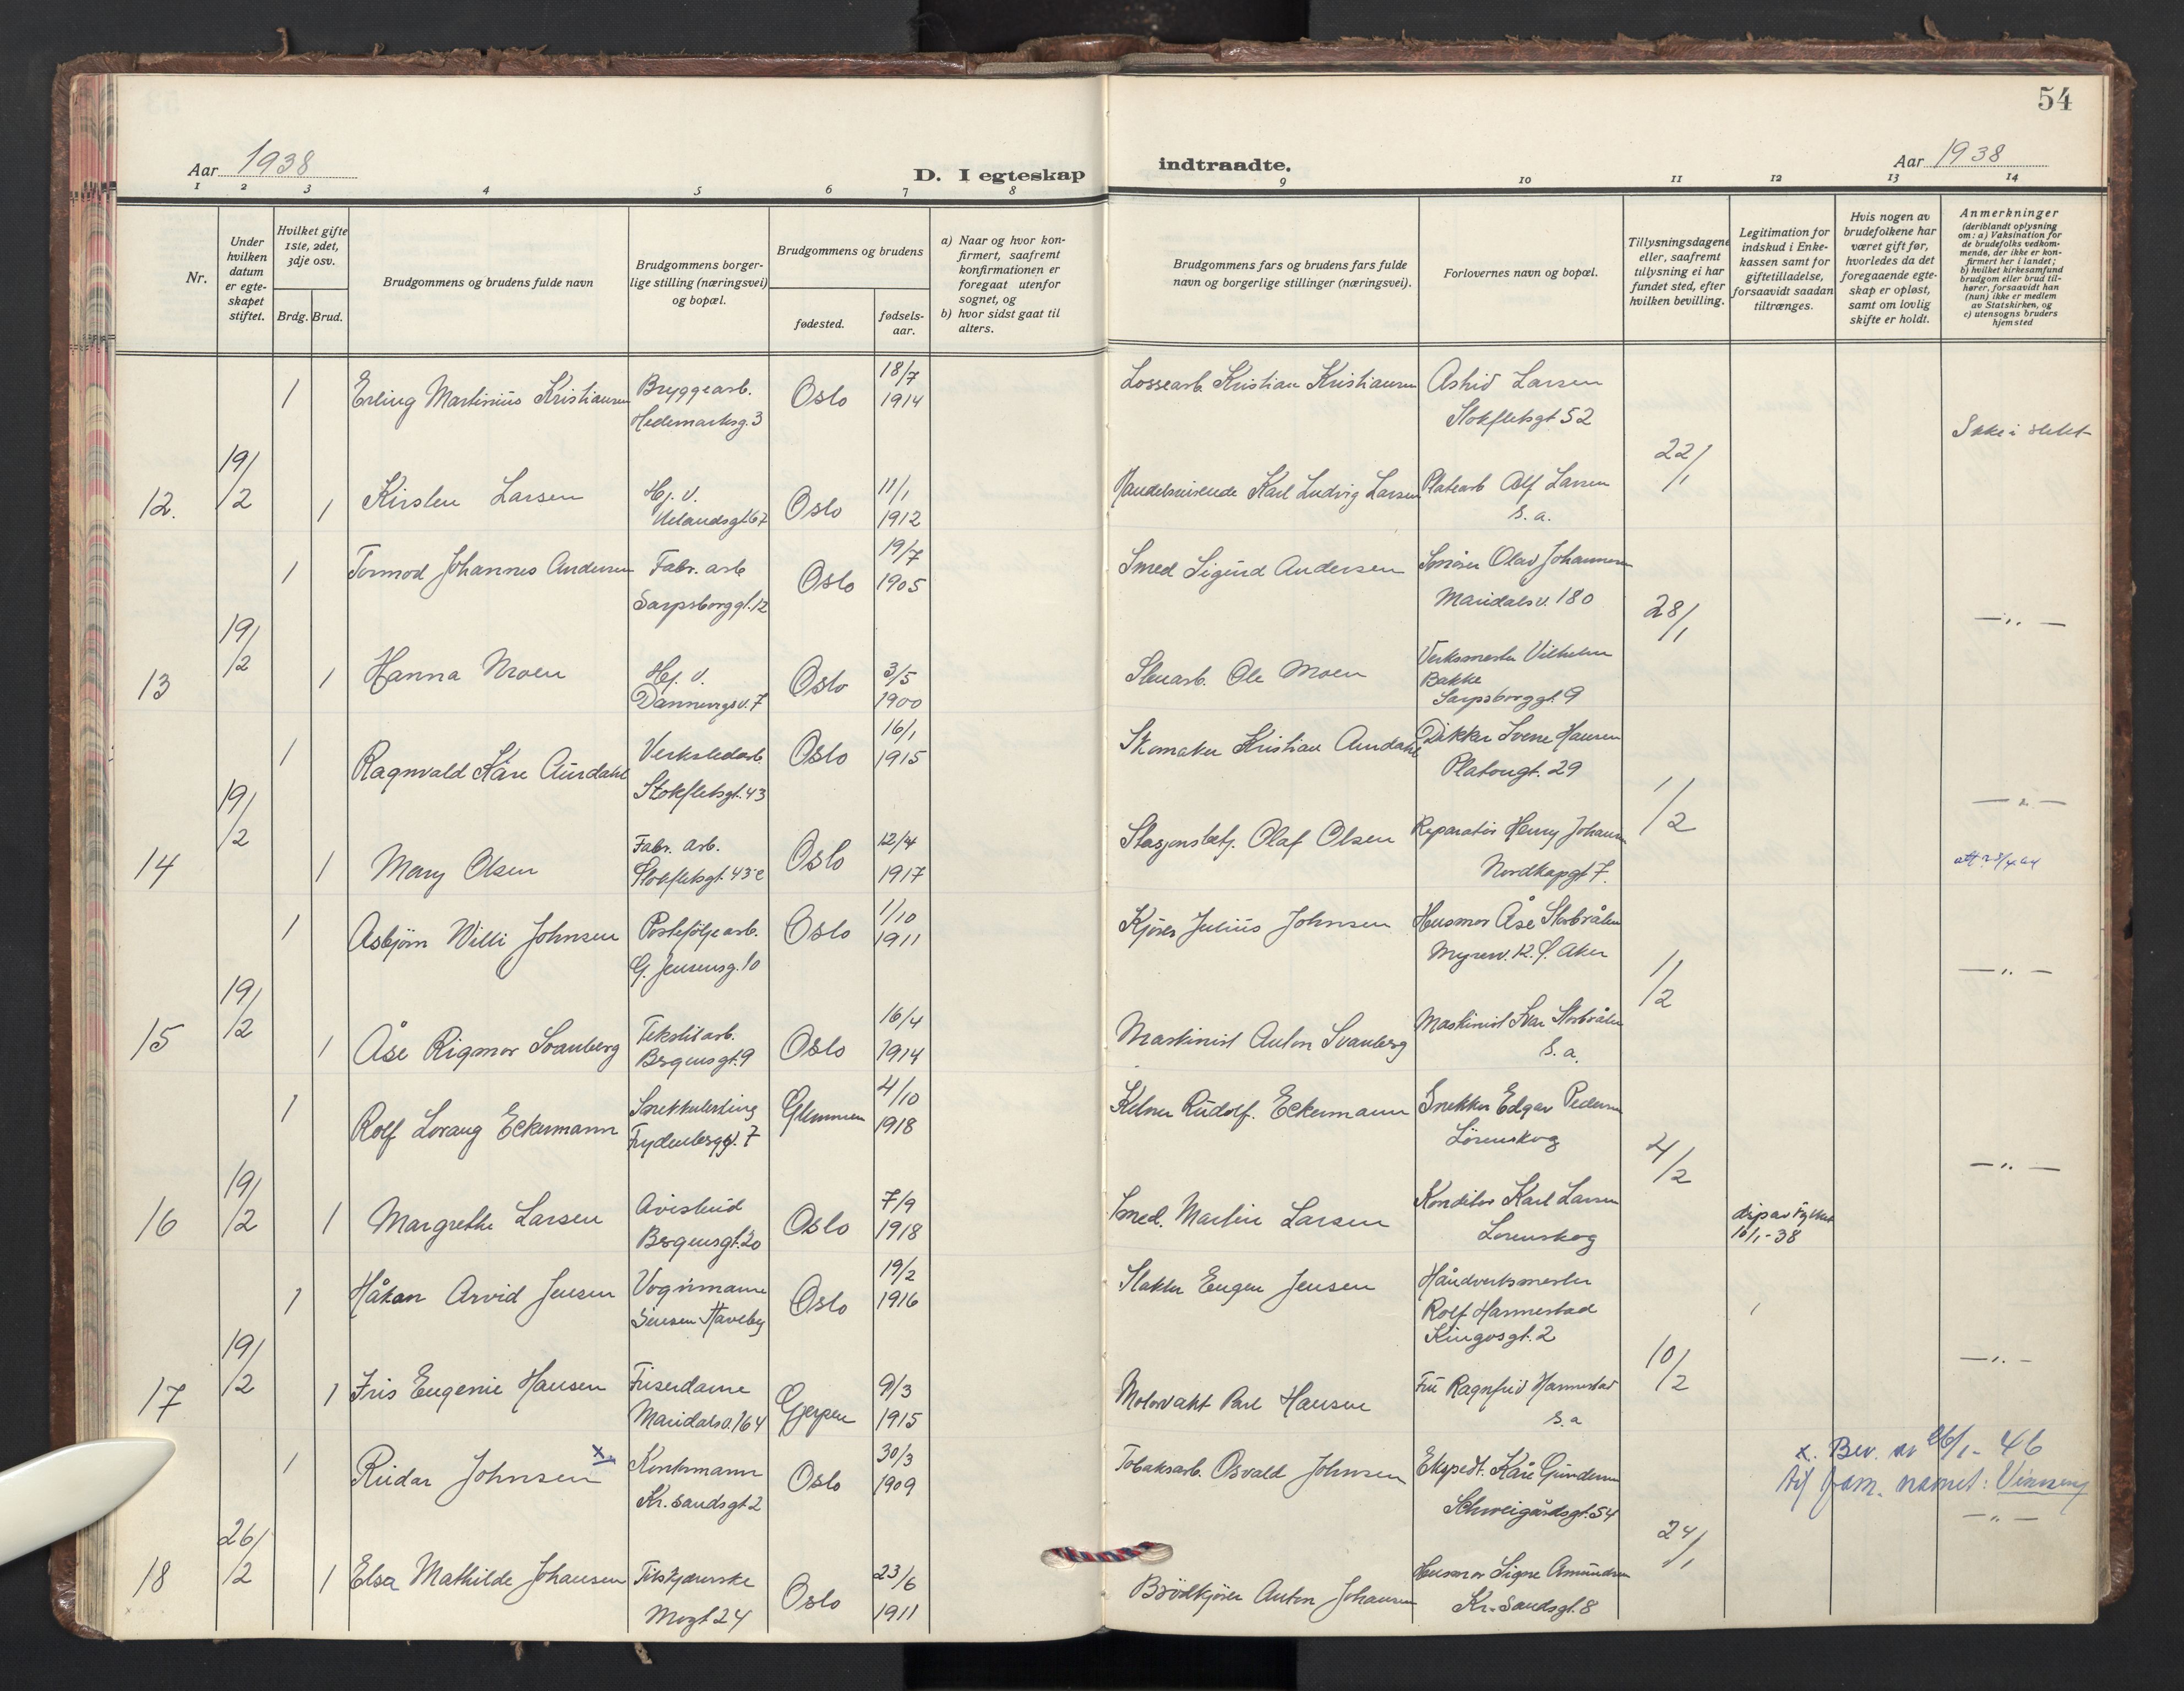 54
Aar 1938
D. I egteskap indtraadte.
Aar 1938
1 2 3 4 5 6 7 8 9 10 11 12 13 14
Nr.
Under hvilken datum er egteskapet stiftet.
Hvilket gifte 1ste, 2det, 3dje osv.
Brdg. Brud.
Brudgommens og brudens fulde navn
Brudgommens borgerlige stilling (næringsvei) og bopæl.
Brudgommens og brudens
fødested.
fødselsaar.
a) Naar og hvor konfirmert, saafremt konfirmationen er foregaat utenfor sognet, og
b) hvor sidst gaat til alters.
Brudgommens fars og brudens fars fulde navn og borgerlige stillinger (næringsvei).
Forlovernes navn og bopæl.
Tillysningsdagene eller, saafremt tillysning ei har fundet sted, efter hvilken bevilling.
Legitimation for indskud i Enkekassen samt for giftetilladelse, forsaavidt saadan tiltrænges.
Hvis nogen av brudefolkene har været gift før, hvorledes da det foregaaende egteskap er opløst, samt om lovlig skifte er holdt.
Anmerkninger (deriblandt oplysning om: a) Vaksination for de brudefolks vedkommende, der ikke er konfirmert her i landet; b) hvilket kirkesamfund brudgom eller brud tilhører, forsaavidt han (nun) ikke er medlem av Statskirken, og c) utensogns bruders hjemsted
1 Erling Martinius Kristiansen Bryggearb. Hedemarksg. 3 Oslo 18/7 1914 Lossearb. Kristian Kristiansen Astrid Larsen Stokfletsgt 52
12. 19/2 1 Kirsten Larsen Hj. v. Uelandsgt 67 Oslo 11/1 1912 Handelsreisende Karl Ludvig Larsen Platearb Alf Larsen s. a. 22/1 Ikke i slekt
1 Tormod Johannes Andersen Fabr. arb Sarpsborggt. 12 Oslo 19/7 1905 Smed Sigurd Andersen Olav Johannesen Maridalsv. 180
13 19/2 1 Hanna Moen Hj. v. Dannevigsv. 7 Oslo 3/5 1900 Stenarb. Ole Moen Verksmester Vilhelm Bakke Sarpsborggt. 9 28/1 — „ —
1 Ragnvald Kåre Aurdahl Verkstedarb. Stokfletsgt. 43 Oslo 16/1 1915 Skomaker Kristian Aurdahl Dekker Sverre Hansen Platougt. 29
14 19/2 1 Mary Olsen Fabr. arb. Stokfletsgt. 43 c Oslo 12/4 1917 Stasjonsbetj. Olaf Olsen Reparatør Henry Johansen Nordkapgt 7. 1/2 — „ —
1 Asbjørn Willi Johnsen Portefølje arb. G. Jensensg. 10 Oslo 1/10 1911 Kjører Julius Johnsen Husmor Åse Storbråten Myrerv. 12. V. Aker
15 19/2 1 Åse Rigmor Svanberg Tekstilarb. Bergensgt. 9 Oslo 16/4 1914 Maskinist Anton Svanberg Maskinist Ivar Storbråten s. a. 1/2 — „ —
1 Rolf Lorang Eckermann Snekkerlærling Frydenberggt. 7 Glemmen 4/10 1918 Kelner Rudolf. Eckermann Snekker Edgar Pedersen Lørenskog
16 19/2 1 Margrethe Larsen Avisbud Bergensgt. 20 Oslo 7/9 1918 Smed. Martin Larsen Konditor Karl Larsen Lørenskog 4/2 disp av Fylket 18/1-38 — „ —
1 Håkan Arvid Jensen Vognmann Sinsen Haveby Oslo 19/2 1916 Slakter Eugen Jensen Håndverksmester Rolf Harmestad Kingosgt. 2
17 19/2 1 Iris Eugenie Hansen Friserdame Maridalsv. 164 Gjerpen 9/3 1915 Motorvakt Karl Hansen Fru Ragnfrid Harmestad s. a 10/2 — „ —
1 Reidar Johnsen x Kontormann Kr. sandsgt 2 Oslo 30/3 1909 Tobaksarb. Osvald Johnsen Eksped. Kåre Gundersen Schweigårdsgt. 54
x. Bev. av 26/1-46
til fam. navnet: Vinseng
18 26/2 1 Elsa Mathilde Johansen Tilskjærerske Mogt 24 Oslo 23/6 1911 Brødkjører Anton Johansen Husmor Signe Amundsen Kr. sandsgt. 8 24/1 — „ —